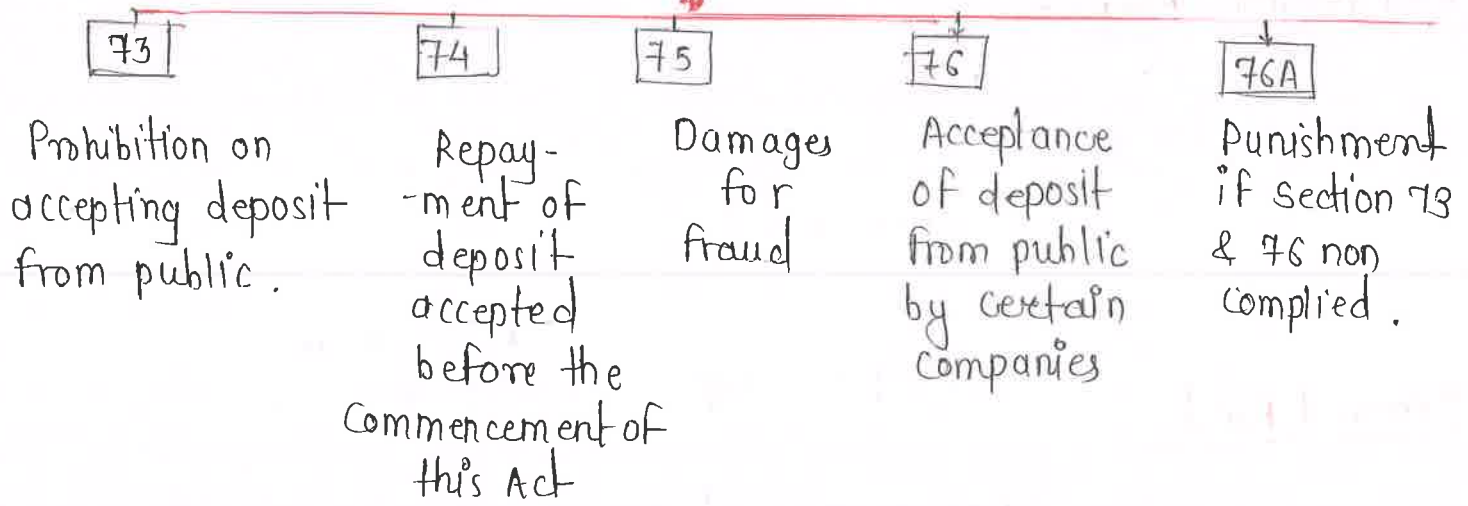 73
Prohibition on
accepting deposit
from public.
74
Repay-
-ment of
deposit
accepted
before the
Commencement of
this Act
75
Damages
for
fraud
76
Acceptance
of deposit
from public
by certain
Companies
76A
Punishment
if section 73
& 76 non
Complied.